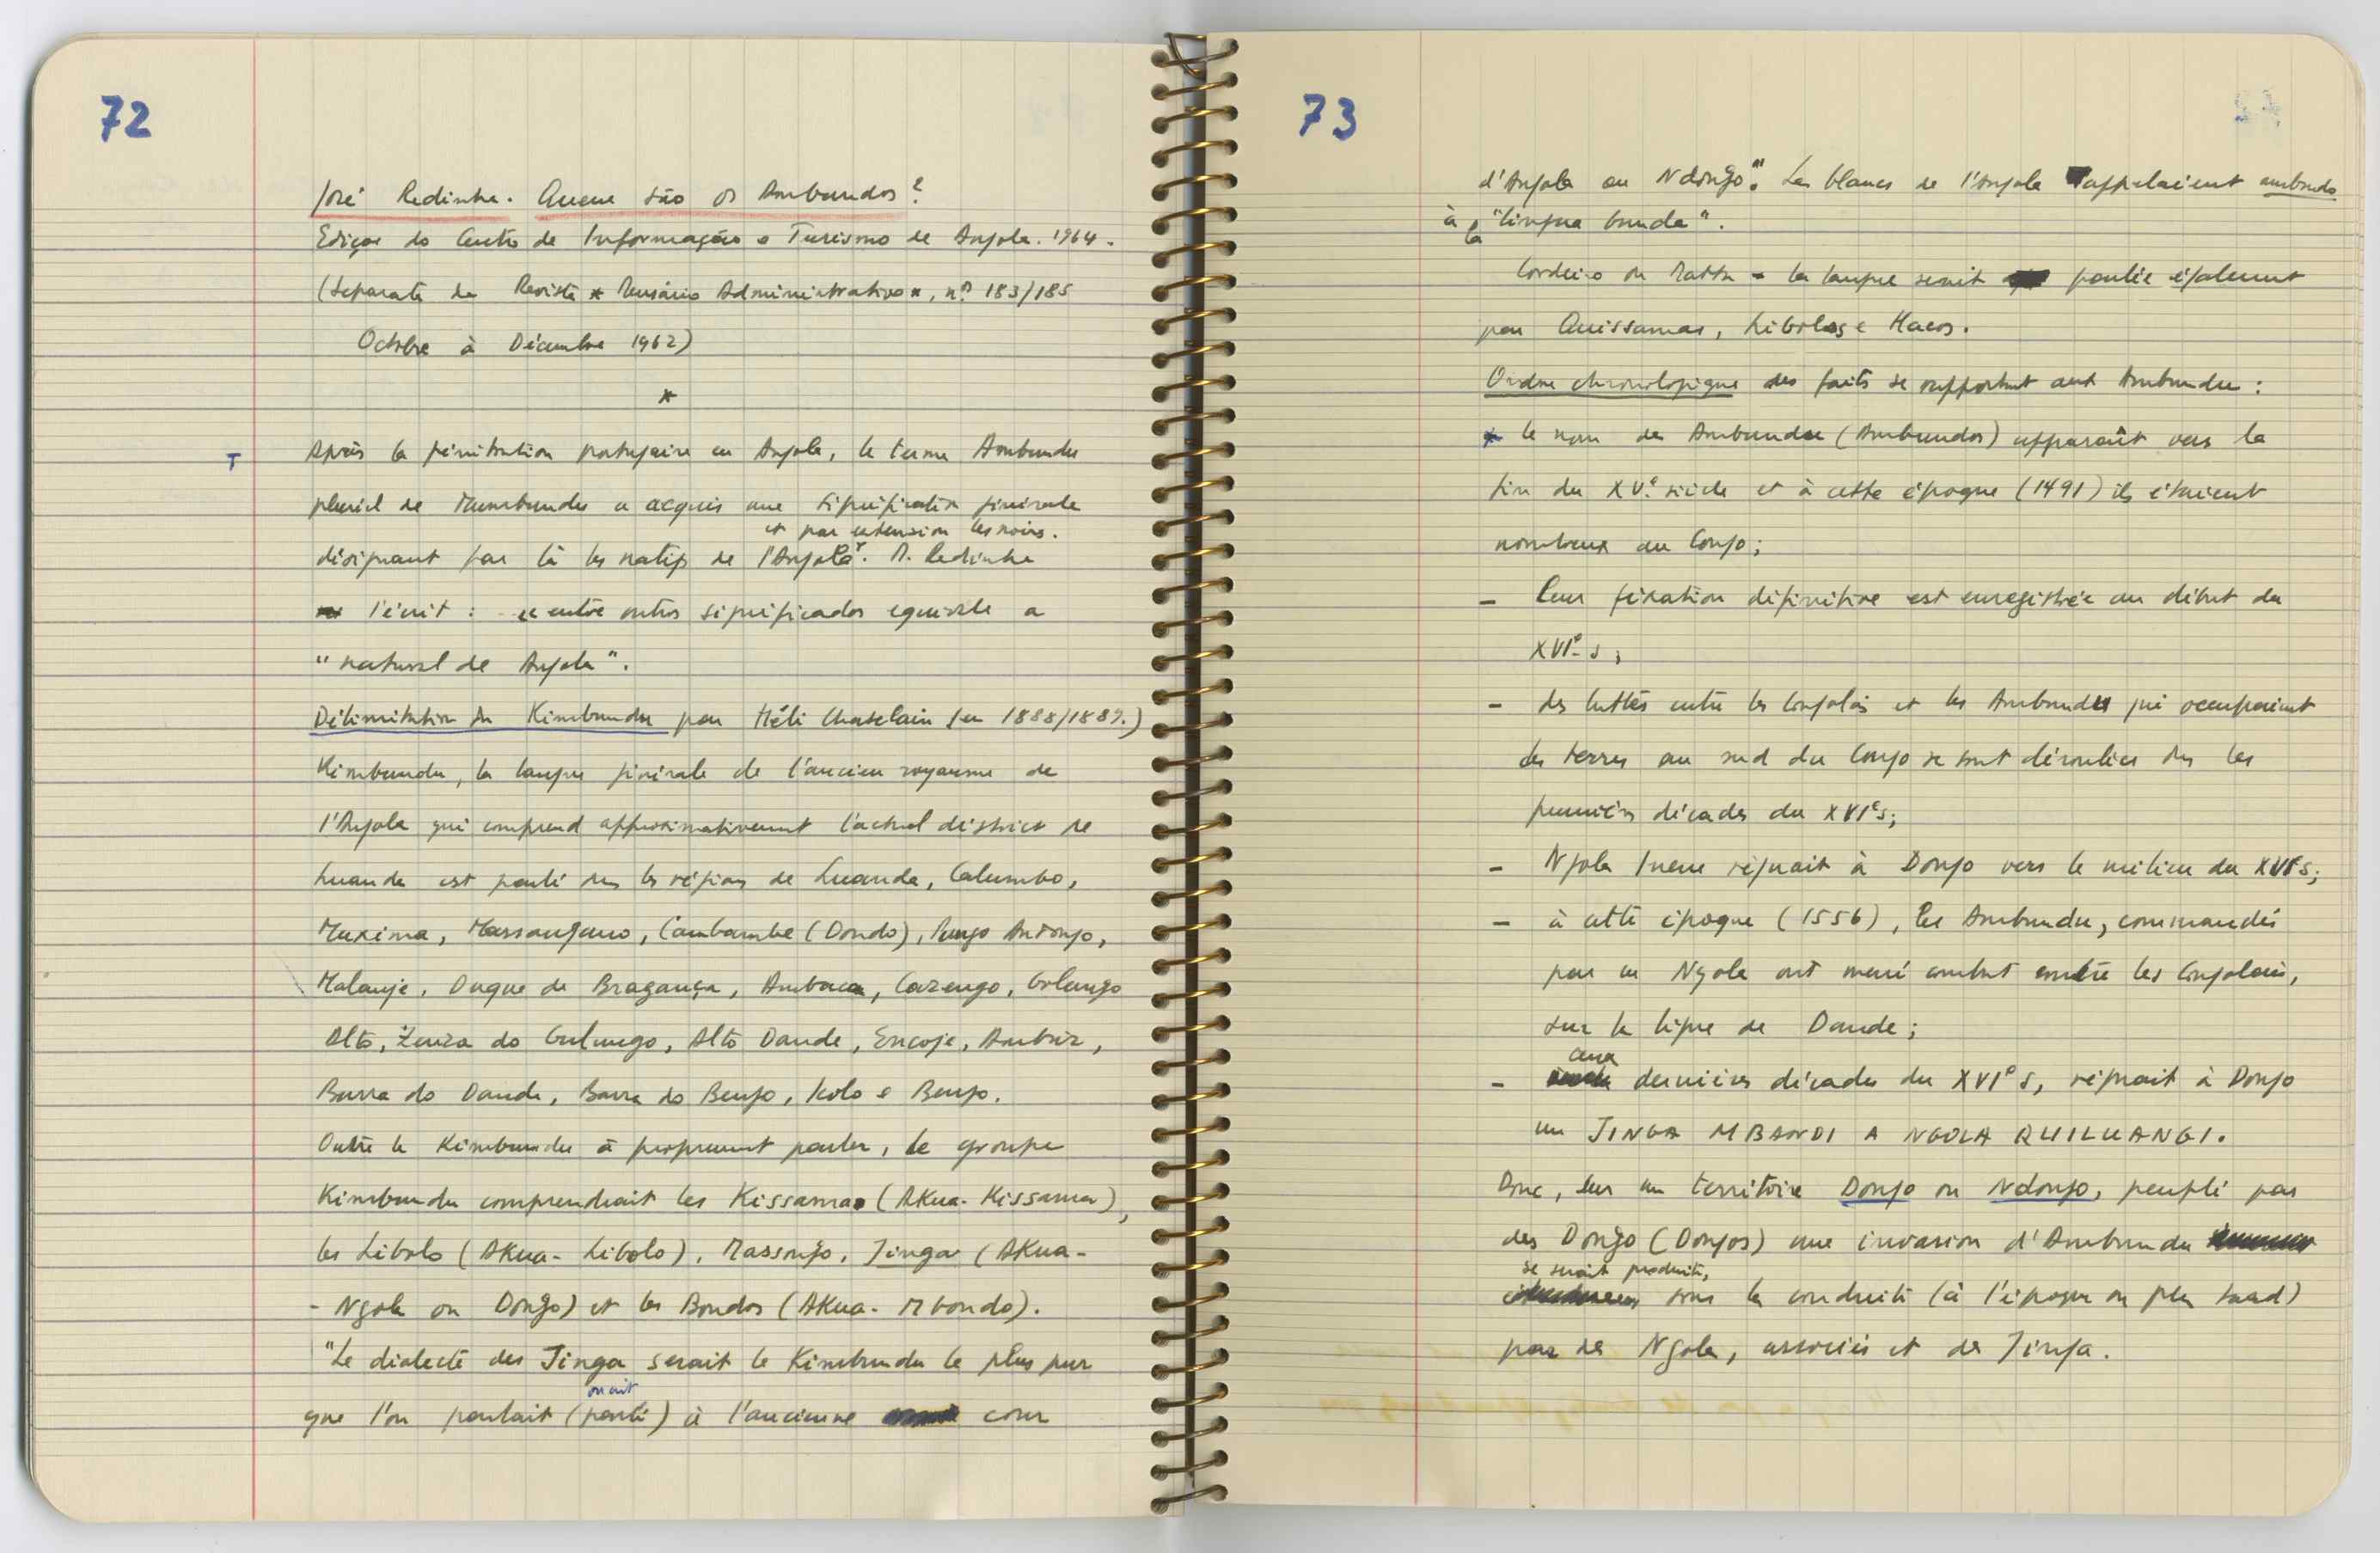 72
José Redinha. Quem são os Ambundos?
Edição do Centro de Informação e Turismo de Angola. 1964.
(Separata da Revista * Mensário Administrativo *, nº 183/185
Octobre à Décembre 1962)
*
T Après la pénétration portugaise en Angola, le terme Ambundu
pluriel de Mumbundu a acquis une signification générale
et par extension les noirs.
désignant par là les natifs de l'Angola. M. Redinha
l'écrit : entre outros significados equivale a
"natural de Angola".
Délimitation du Kimbundu par Héli Chatelain (en 1888/1889.)
Kimbundu, la langue générale de l'ancien royaume de
l'Angola qui comprend approximativement l'actuel district de
Luanda est parlé dans les régions de Luanda, Calumbo,
Muxima, Massangano, Cambambe (Dondo), Pungo Andongo,
Malanje, Duque de Bragança, Ambaca, Cazengo, Golungo
Alto, Zenza do Golungo, Alto Dande, Encoje, Ambriz,
Barra do Dande, Barra do Bengo, Icolo e Bengo.
Outre le Kimbundu à proprement parler, le groupe
Kimbundu comprendrait les Kissamas (Akua-Kissama),
les Libolo (Akua-Libolo), Massongo, Jinga (Akua-
- Ngola ou Dongo) et les Bondos (Akua-Mbondo).
"Le dialecte des Jinga serait le Kimbundu le plus pur
ou ait
que l'on parlait (parlé) à l'ancienne cour
73
d'Angola ou Ndongo". Les blancs de l'Angola appelaient ambundo
à la "lingua bunda".
Cordeiro da Matta - la langue serait parlée également
par Quissamas, Libolos e Hacos.
Ordre chronologique des faits se rapportant aux Ambundu :
* le nom de Ambundu (Ambundos) apparaît vers la
fin du XVe siècle et à cette époque (1491) ils étaient
nombreux au Congo;
- leur fixation définitive est enregistrée au début du
XVIe s;
- des luttes entre les Congolais et les Ambundu qui occupaient
des terres au sud du Congo se sont déroulées dans les
premières décades du XVIe s;
- Ngola Inene régnait à Dongo vers le milieu du XVIe s;
- à cette époque (1556), les Ambundu, commandés
par un Ngola ont mené combat contre les Congolais,
sur la ligne de Dande;
aux
- dernières décades du XVIe s, régnait à Dongo
un JINGA MBANDI A NGOLA QUILUANGI.
Donc, sur un territoire Dongo ou Ndongo, peuplé par
des Dongo (Dongos) une invasion d'Ambundu
se serait produite,
sous la conduite (à l'époque ou plus tard)
par des Ngola, associés et de Jinga.